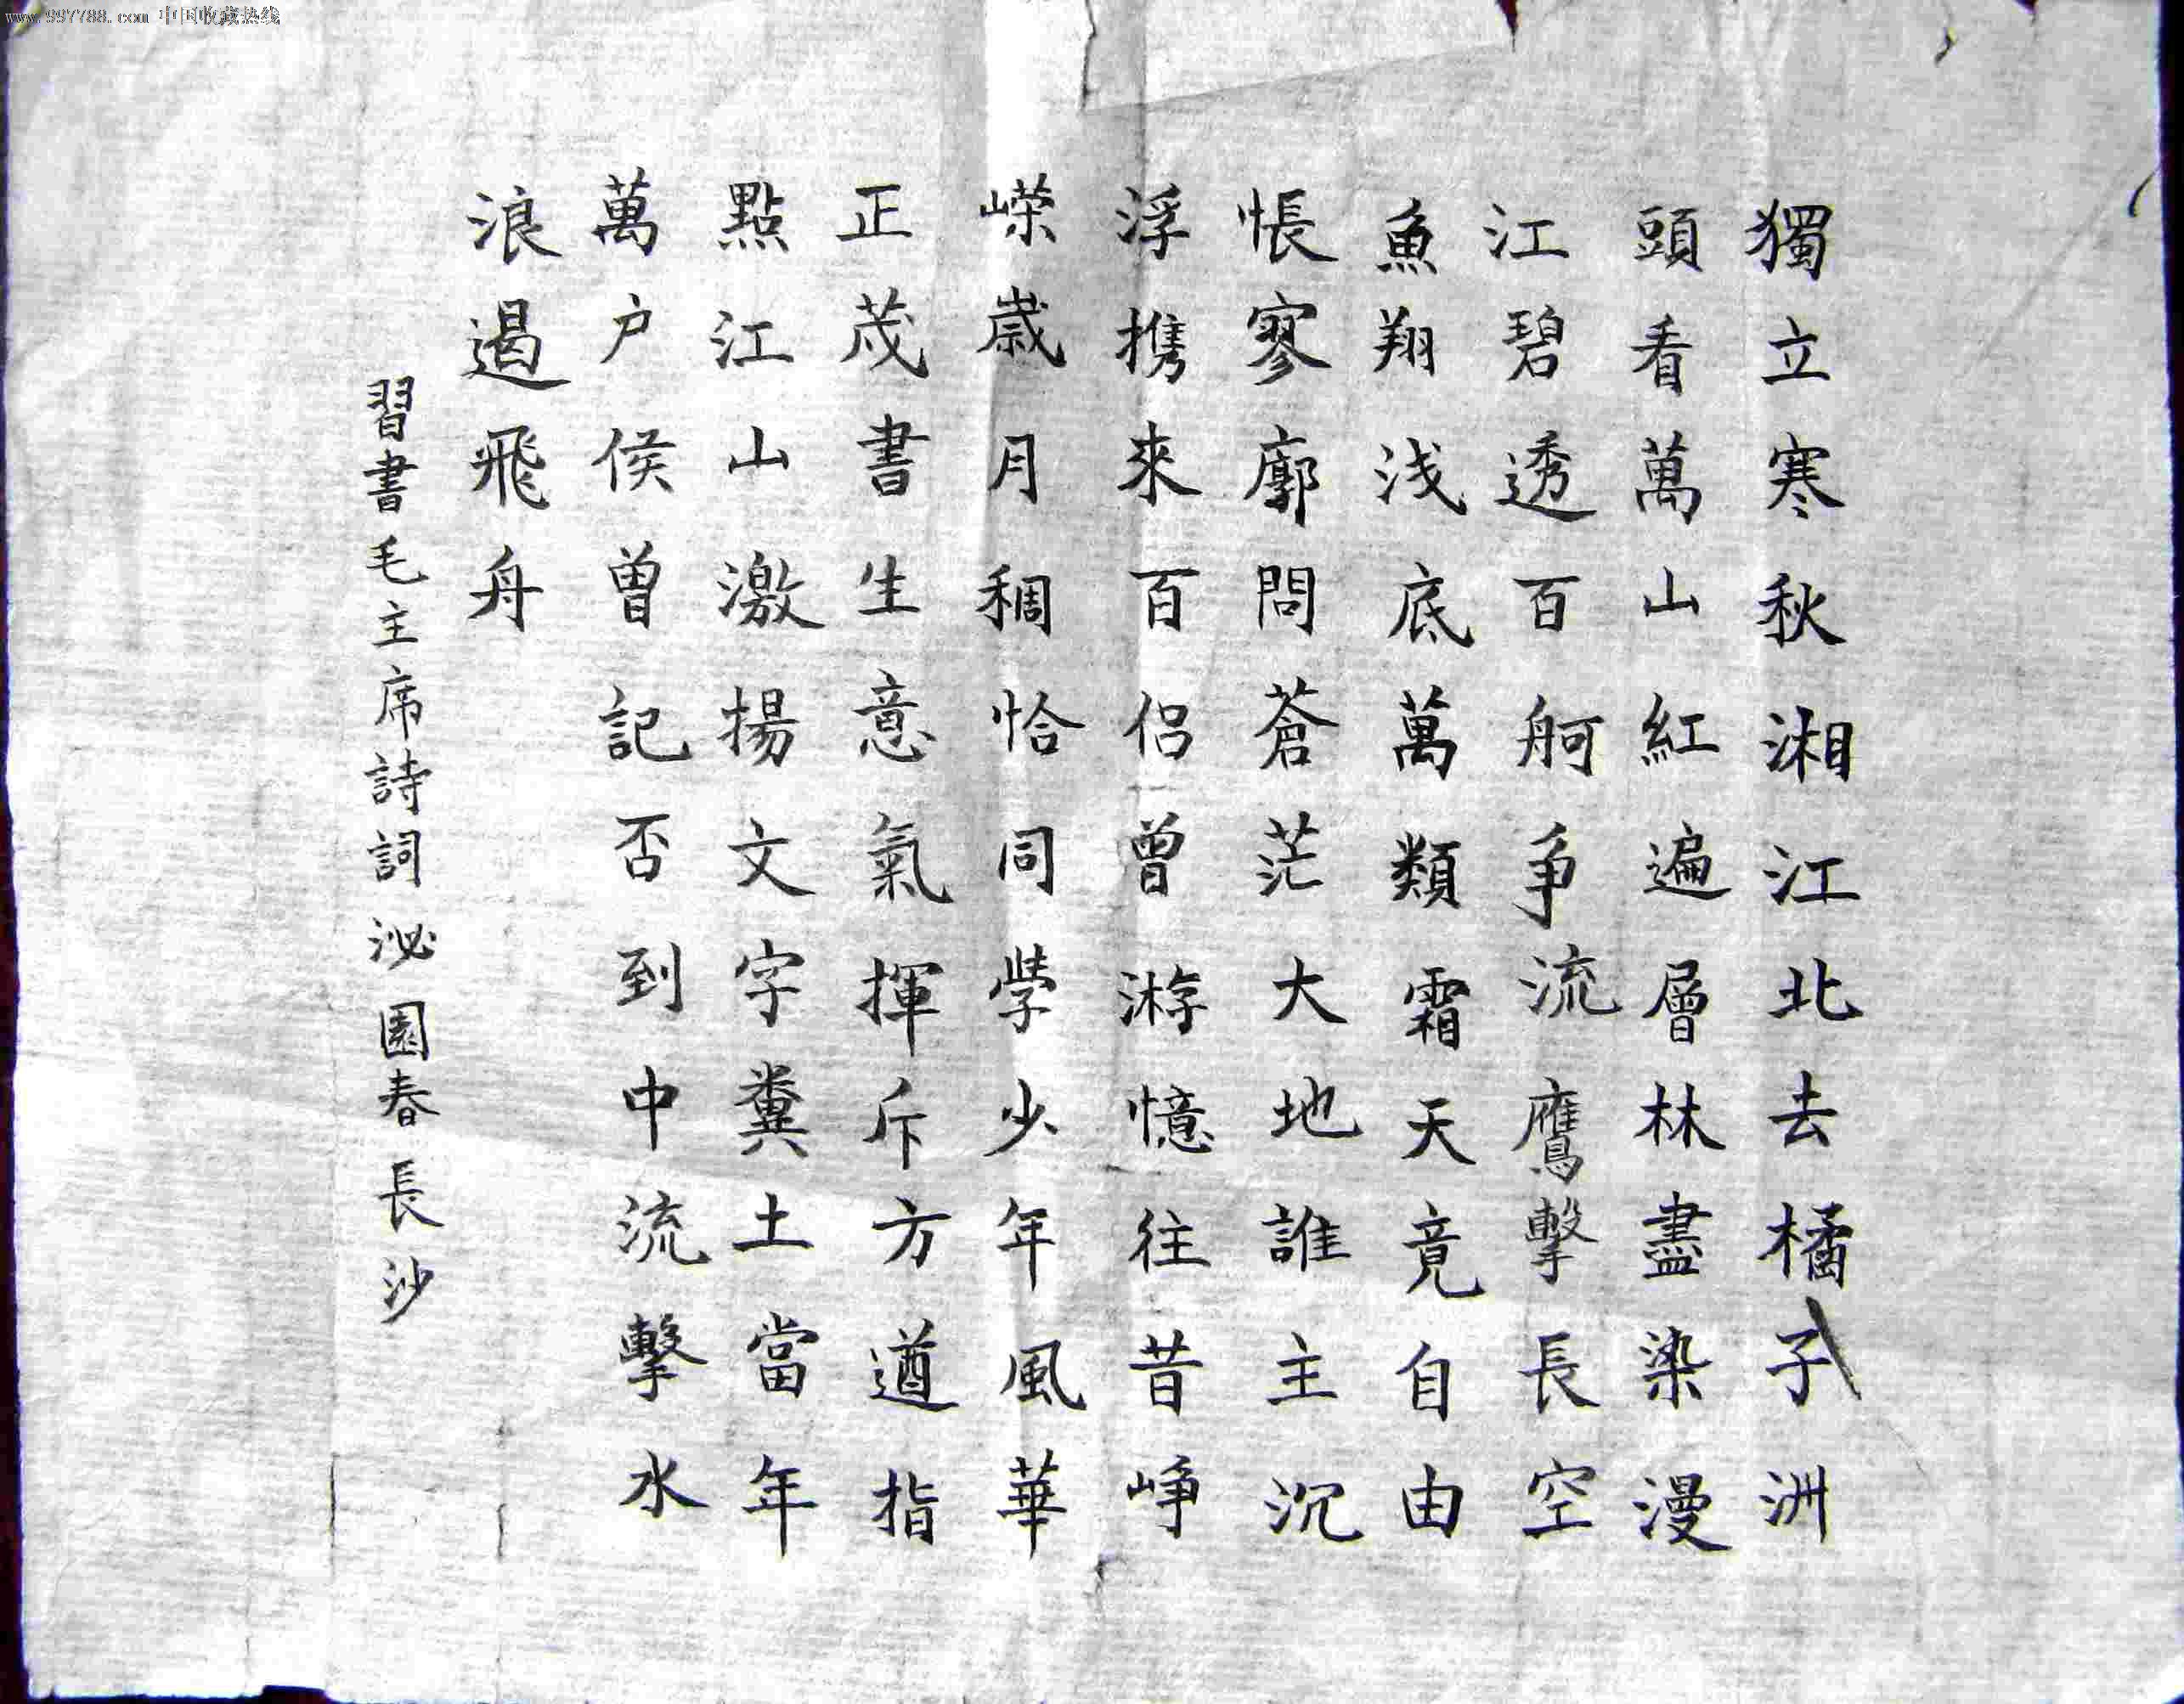 www.997788.com 中国收藏热线
獨立寒秋湘江北去橘子洲
頭看萬山紅遍層林盡染漫
江碧透百舸争流鷹擊長空
魚翔浅底萬類霜天竟自由
悵寥廓問蒼茫大地誰主沉
浮携來百侣曾游憶往昔峥
嵘歲月稠恰同學少年風華
正茂書生意氣揮斥方遒指
點江山激揚文字糞土當年
萬户侯曾記否到中流擊水
浪遏飛舟
習書毛主席詩詞沁園春長沙